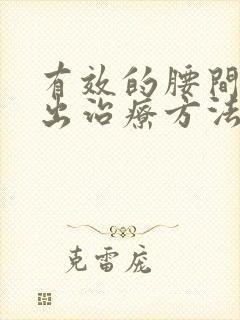 有效的腰間
出治療方法
克雷庞